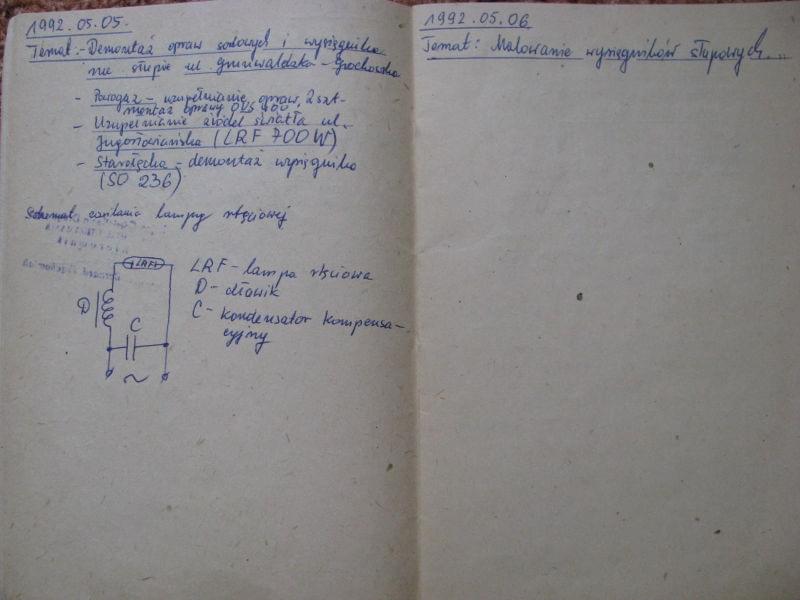 1992.05.05.
Temat:- Demontaż opraw sodowych i wysięgnika
na słupie ul. Grunwaldzka - Grochowska
- uzupełnianie opraw 2 szt.
montaż oprawy OUS 400
- Uzupełnianie źródeł światła ul.
Jugosłowiańska (LRF 700W)
- Starołęcka - demontaż wysięgnika
(SO 236)
Schemat zasilania lampy rtęciowej
LRF
LRF - lampa rtęciowa
D - dławik
C - kondensator kompensa-
cyjny
D
C
~
1992.05.06.
Temat: Malowanie wysięgników słupowych...